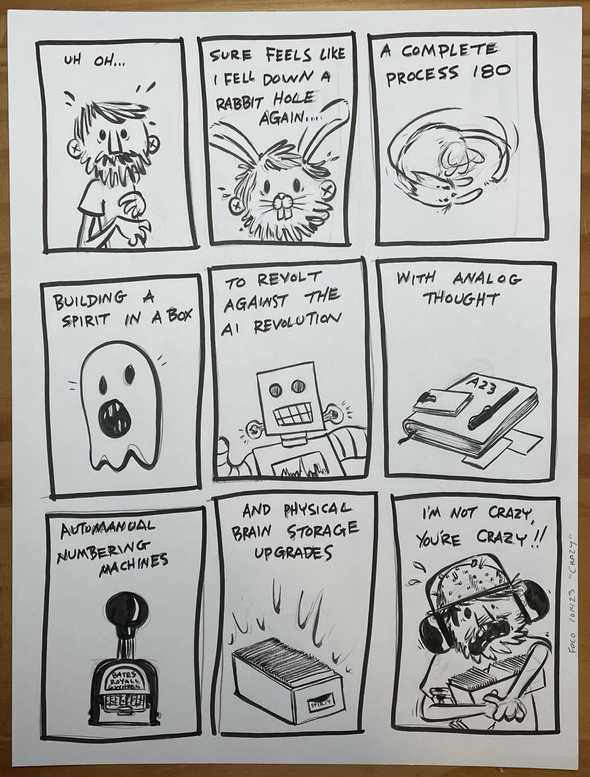 UH OH...
SURE FEELS LIKE
I FELL DOWN A
RABBIT HOLE
AGAIN....
A COMPLETE
PROCESS 180
BUILDING A
SPIRIT IN A BOX
TO REVOLT
AGAINST THE
AI REVOLUTION
WITH ANALOG
THOUGHT
A23
AUTOMANUAL
NUMBERING
MACHINES
BATES
ROYALL
AND PHYSICAL
BRAIN STORAGE
UPGRADES
SPIRIT
I'M NOT CRAZY,
YOU'RE CRAZY!!
FOCO 101423 "CRAZY"